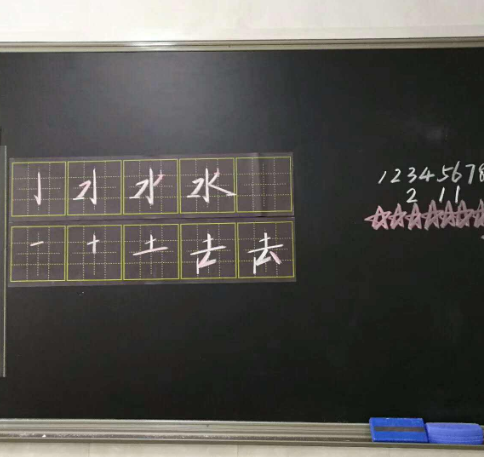 亅 水 水
一 十 土 去 去
12345678
2 11